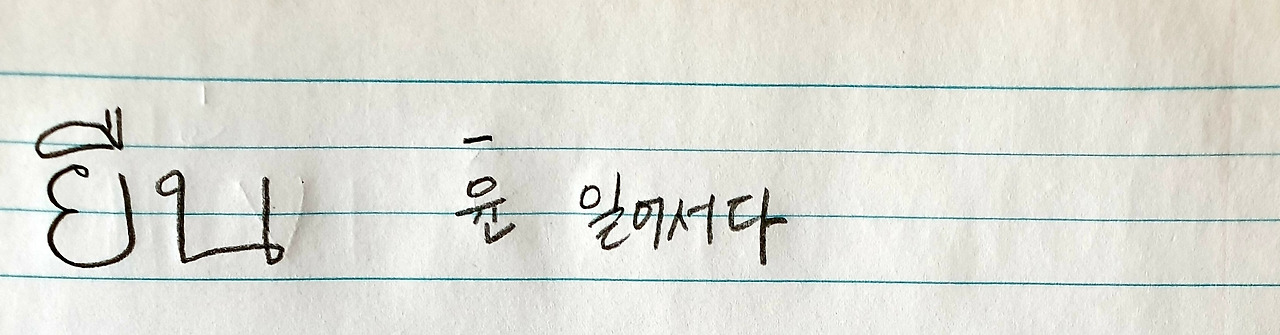 ยืน 윤̄ 일어서다